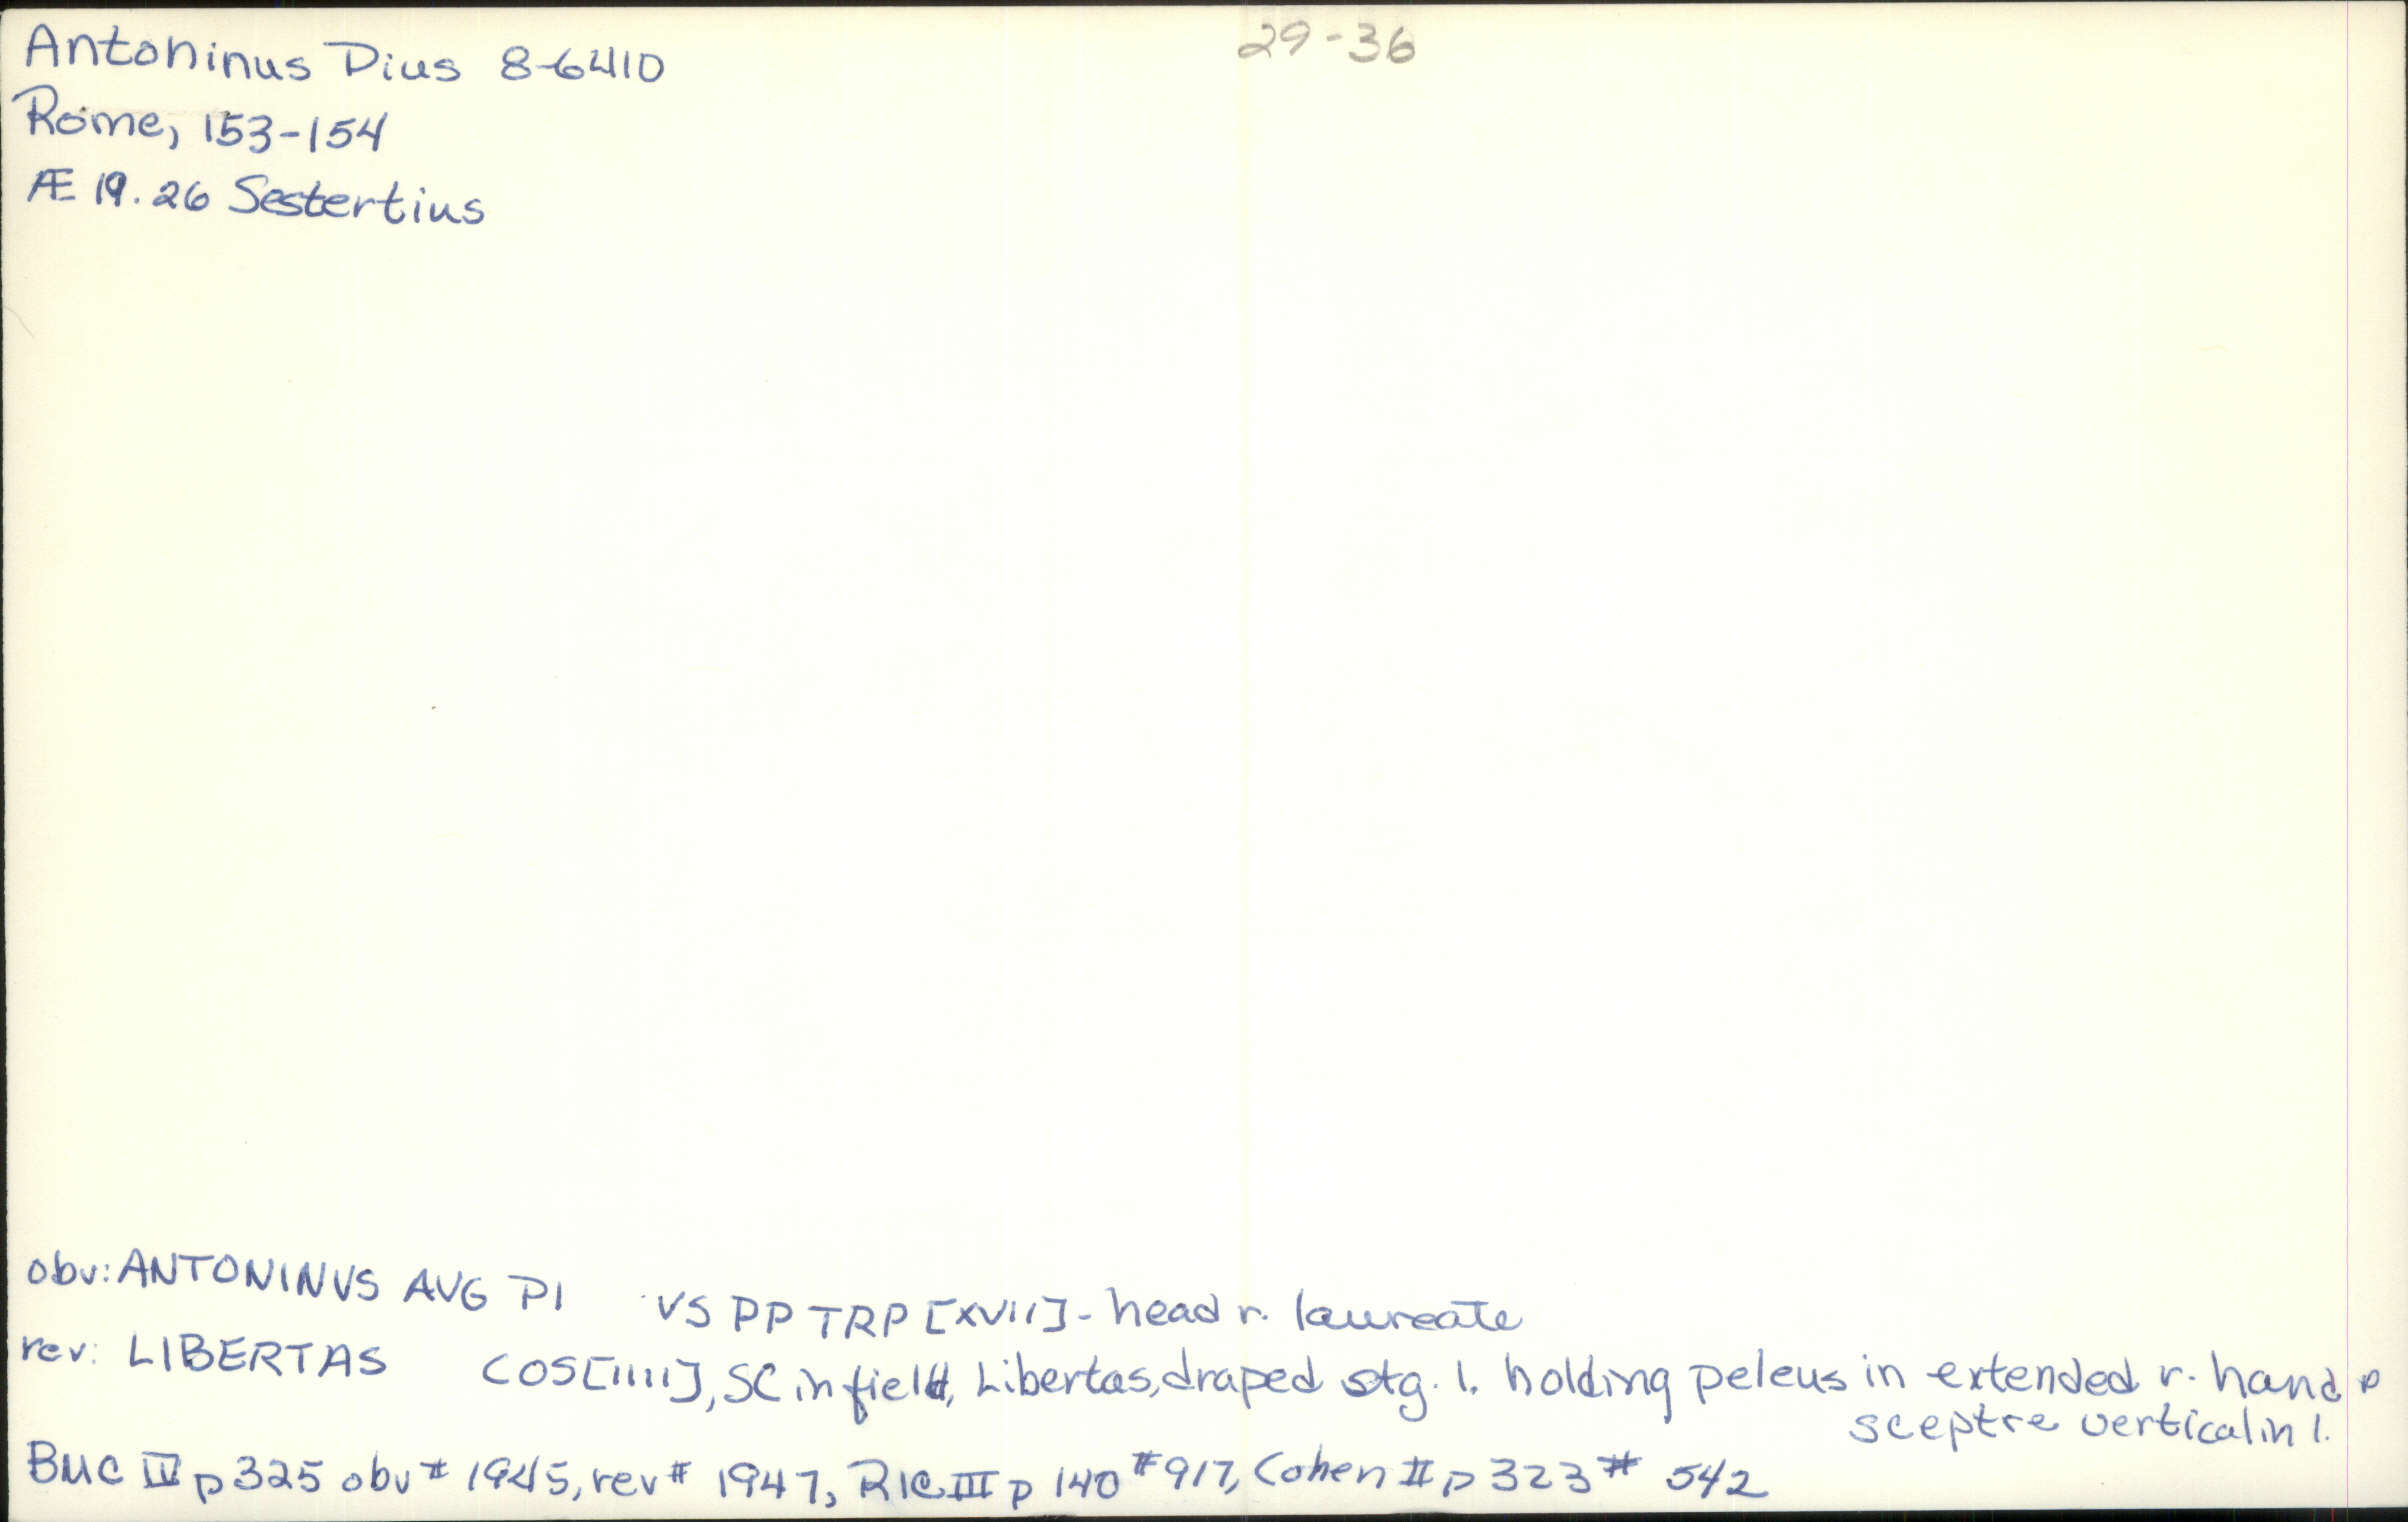 Antoninus Pius 8-6410
29-36
Rome, 153-154
Æ 19.26 Sestertius
obv: ANTONINVS AVG PI VS PP TRP [XVII] - head r. laureate
rev: LIBERTAS COS[IIII], SC in field, Libertas, draped stg. l. holding peleus in extended r. hand
sceptre vertical in l.
BMC IV p 325 obv # 1945, rev # 1947, RIC III p 140 # 917, Cohen II p 323 # 542